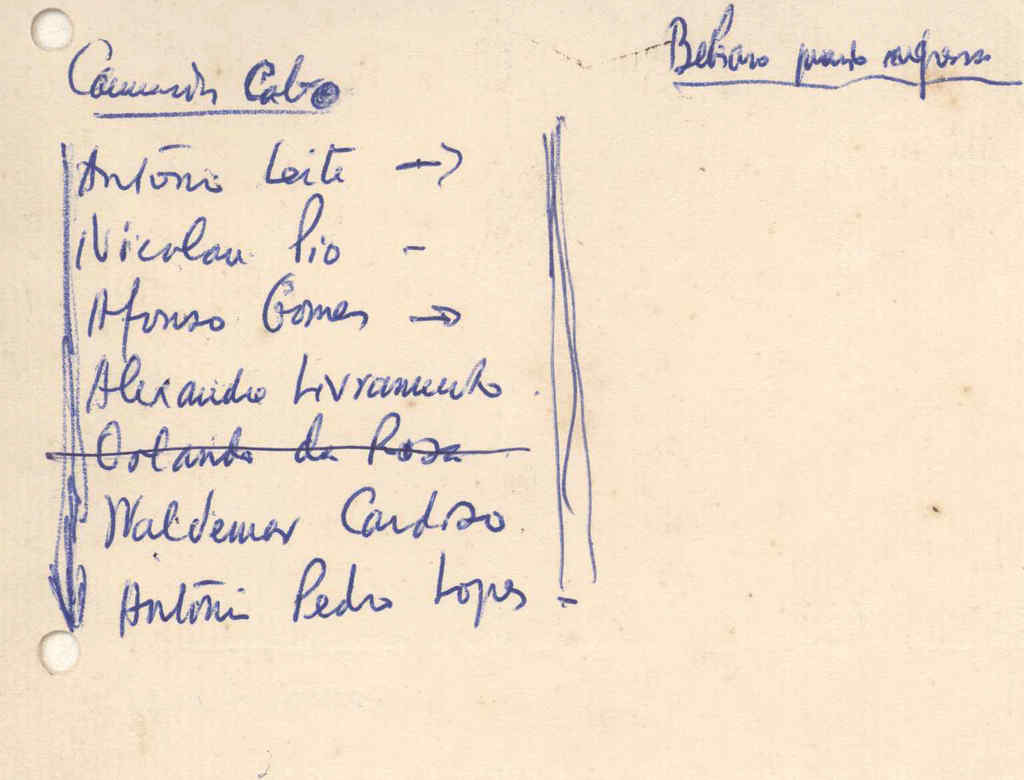 Comissão Cabo
António Leite →
Nicolau Pio -
Afonso Gomes →
Alexandre Livramento .
Orlando da Rosa
Waldemar Cardoso
António Pedro Lopes -
quando regressa